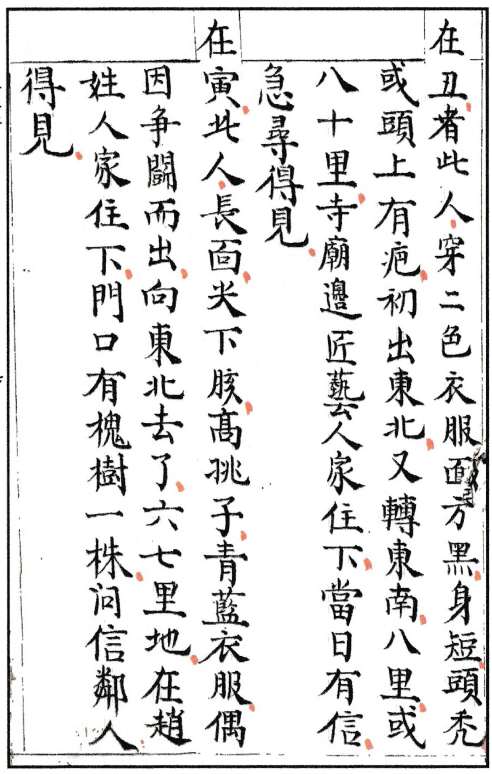 在丑者此人穿二色衣服面方黑身短頭禿
或頭上有疤初出東北又轉東南八里或
八十里寺廟邊匠藝人家住下當日有信
急尋得見
在寅此人長面尖下胲高挑子青藍衣服偶
因争鬭而出向東北去了六七里地在趙
姓人家住下門口有槐樹一株问信鄰人
得見